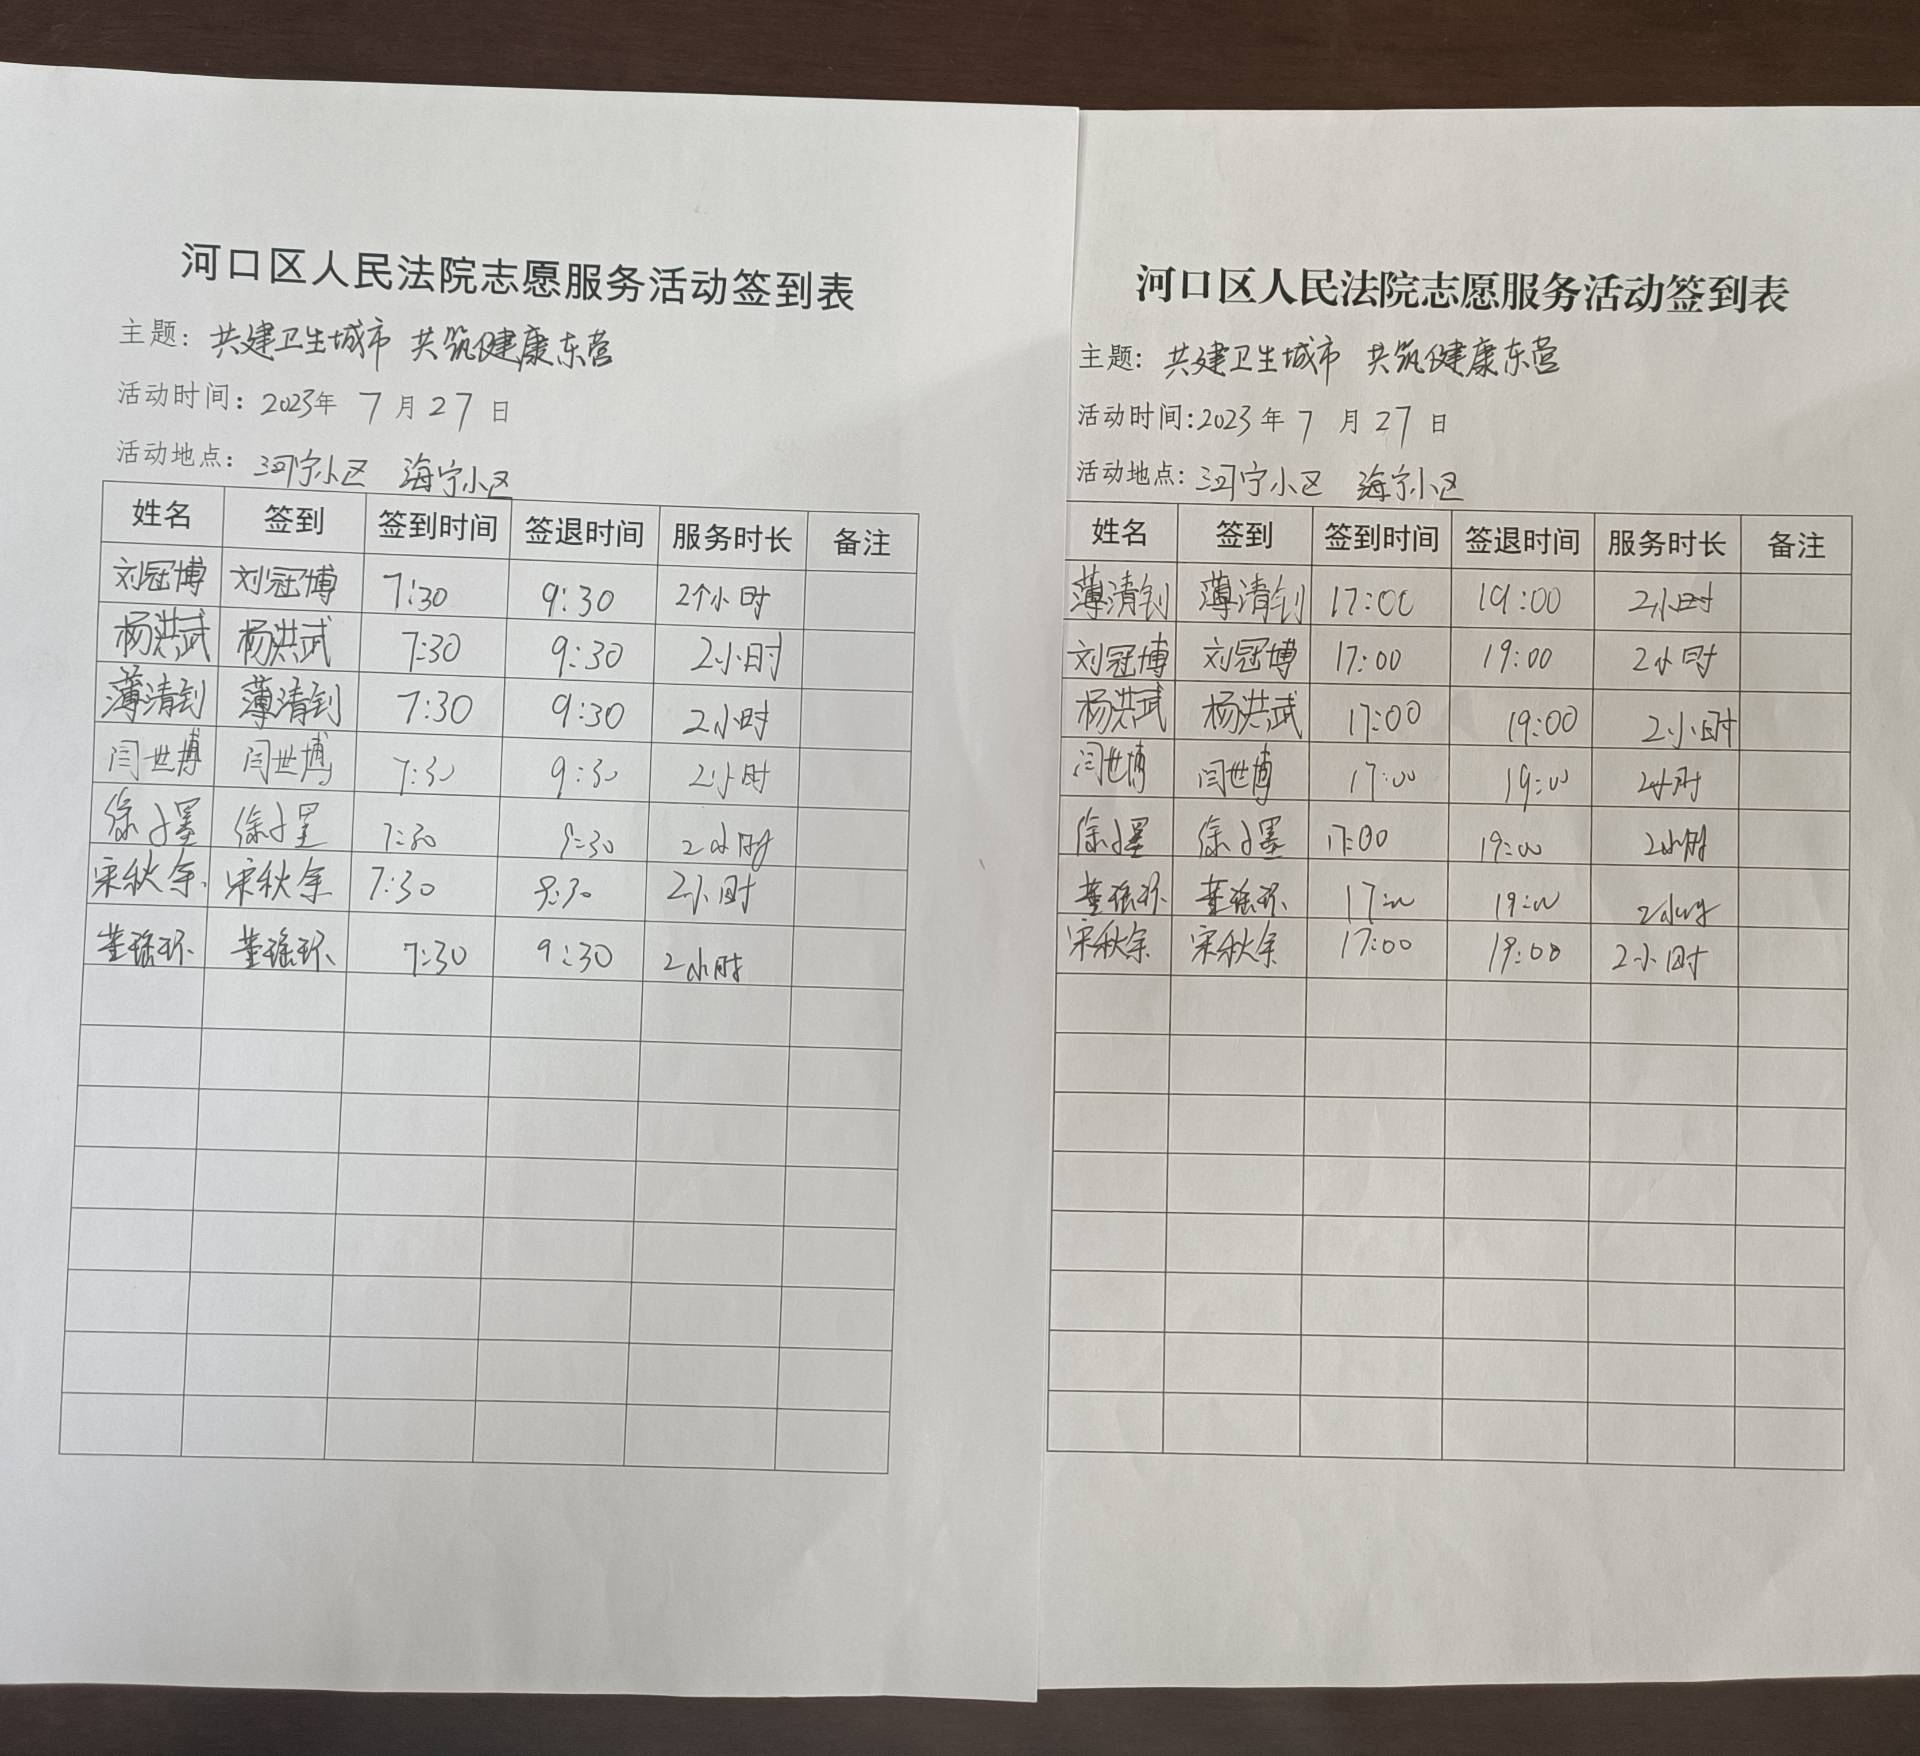 河口区人民法院志愿服务活动签到表
主题：共建卫生城市 共筑健康东营
活动时间：2023年 7 月 27 日
活动地点：河宁小区 海宁小区
姓名 签到 签到时间 签退时间 服务时长 备注
刘冠博 刘冠博 7:30 9:30 2个小时
杨洪武 杨洪武 7:30 9:30 2小时
薄清钊 薄清钊 7:30 9:30 2小时
闫世博 闫世博 7:30 9:30 2小时
徐子墨 徐子墨 7:30 9:30 2小时
宋秋余 宋秋余 7:30 9:30 2小时
董瑶环 董瑶环 7:30 9:30 2小时
河口区人民法院志愿服务活动签到表
主题：共建卫生城市 共筑健康东营
活动时间：2023 年 7 月 27 日
活动地点：河宁小区 海宁小区
姓名 签到 签到时间 签退时间 服务时长 备注
薄清钊 薄清钊 17:00 19:00 2小时
刘冠博 刘冠博 17:00 19:00 2小时
杨洪武 杨洪武 17:00 19:00 2小时
闫世博 闫世博 17:00 19:00 2小时
徐子墨 徐子墨 17:00 19:00 2小时
董瑶环 董瑶环 17:00 19:00 2小时
宋秋余 宋秋余 17:00 19:00 2小时